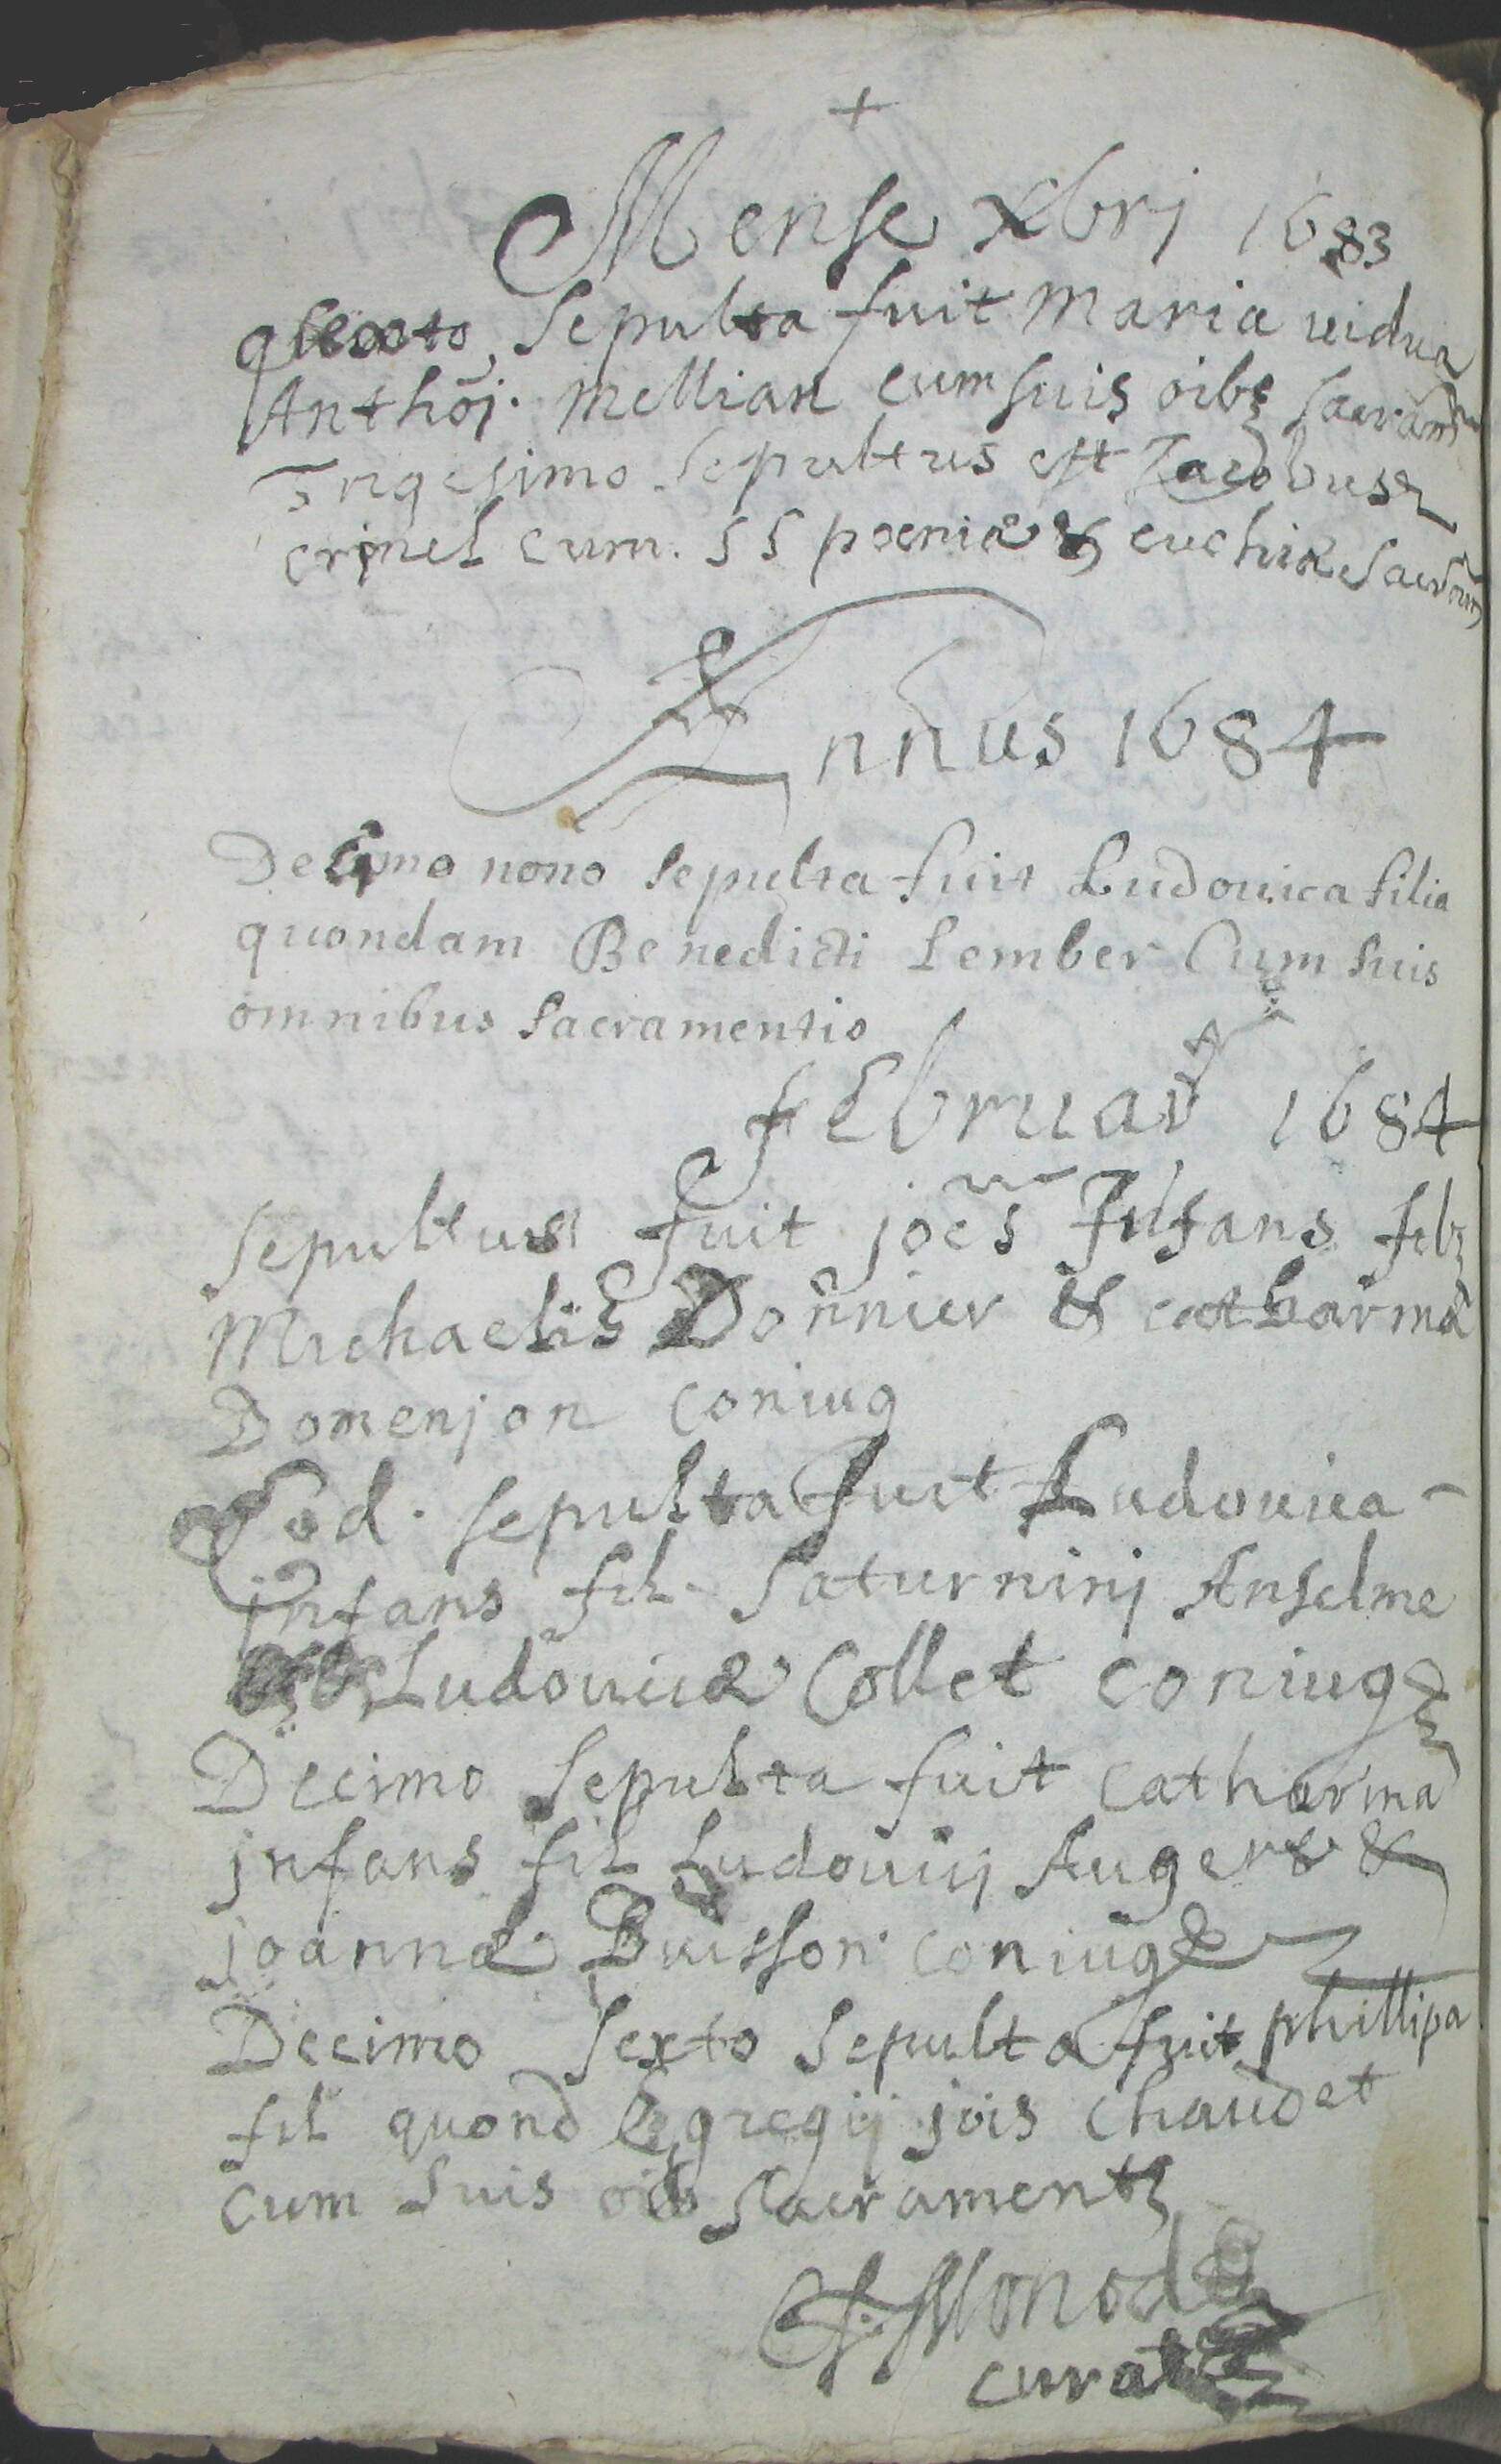 +
Mense xbrj 1683
sepulta fuit Maria uidua
Anthoj. Mellian cum suis oibs sacram
Trigesimo sepultus est Jacobus
crinel cum. SS poeniæ & euchiæ Sacrom
Annus 1684
Decimo nono sepulta fuit Ludouica filia
quondam Benedicti Lember Cum suis
omnibus Sacramentis
februar 1684
sepultus fuit joēs Infans fil
Michaelis Donnier & catharina
Domenjon coniug
Eod. sepulta fuit Ludouica -
jnfans fil Saturninj Anselme
Ludouicæ Collet coniug
Decimo Sepulta fuit catharina
jnfans fil Ludouicj Augers &
joannæ Buisson coniug
Decimo Sexto Sepulta fuit phillipa
fil quond Egregij jois chaudet
cum Suis oib Sacrament
Monod
curat